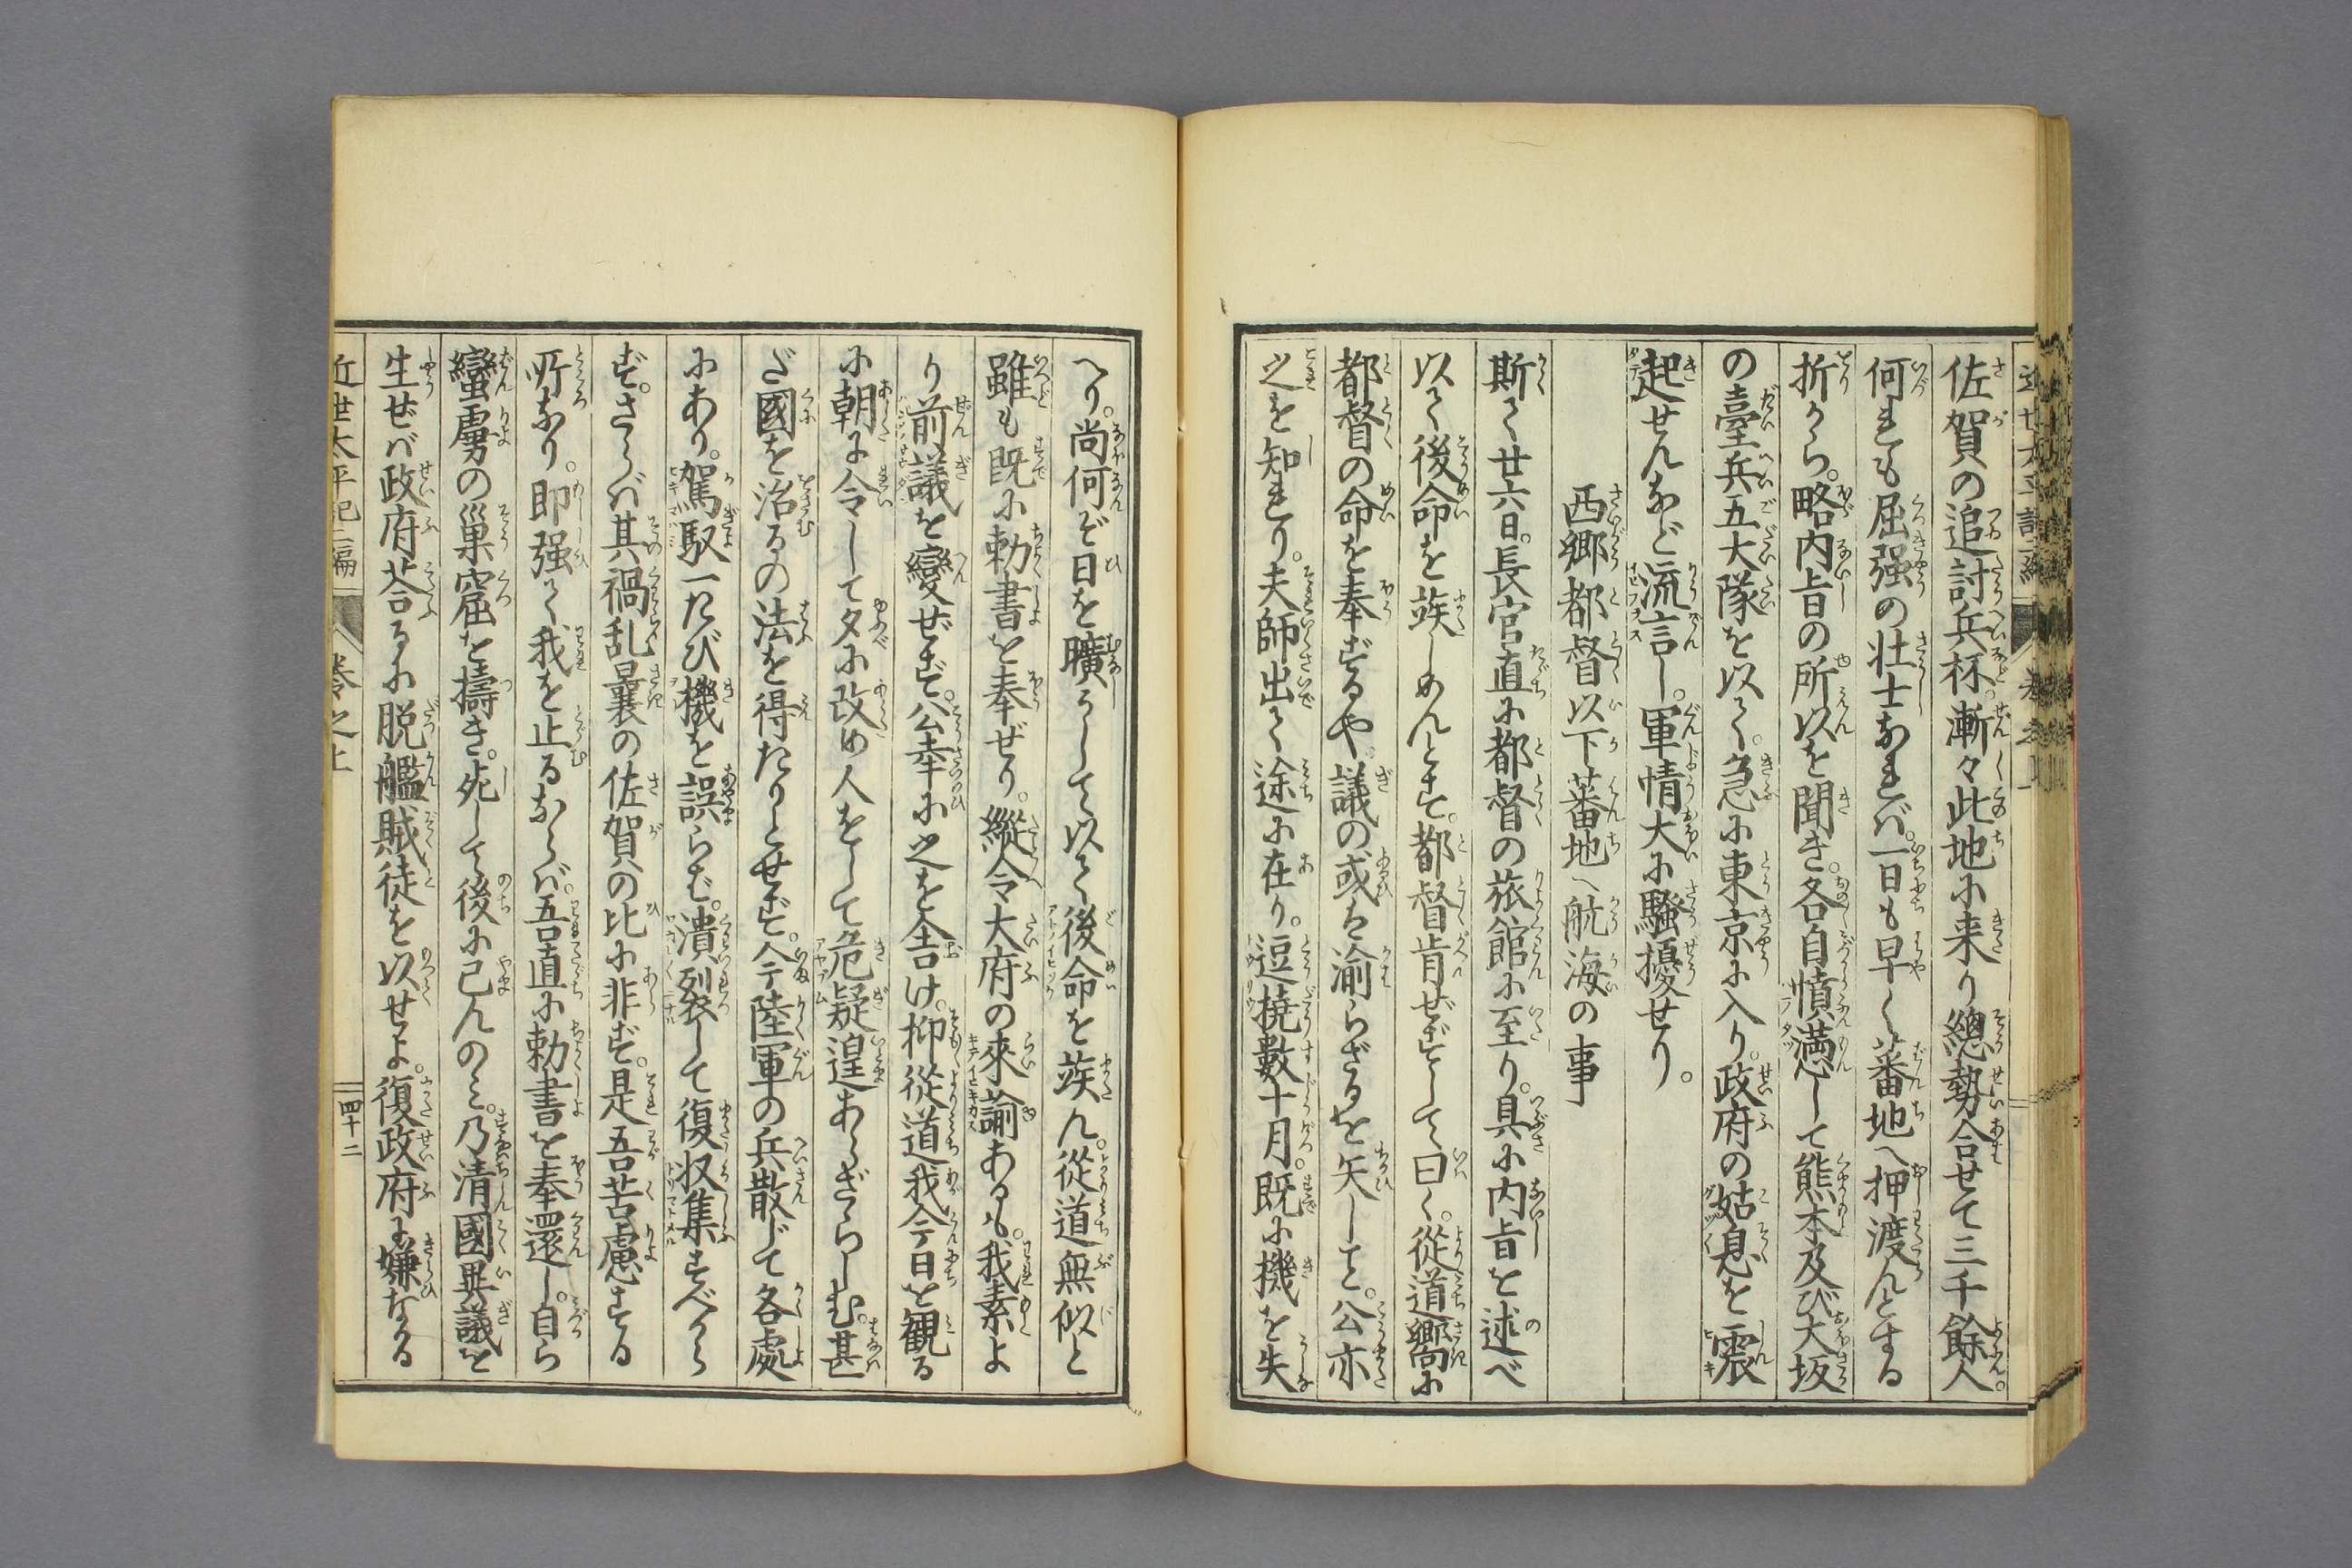 佐賀の追討兵杯。漸々此地に来り總勢合せて三千餘人。
何れも屈強の壮士なれバ。一日も早く蕃地へ押渡んとする
折から。略内旨の所以を聞き。各自憤懣して熊本及び大坂
の臺兵五大隊を以て。急に東京に入り。政府の姑息を震
起せんなど流言し。軍情大に騒擾せり。
西郷都督以下蕃地へ航海の事
斯て廿六日。長官直に都督の旅館に至り。具に内旨を述べ
以て後命を竢しめんとす。都督肯ぜずして曰く。從道嚮に
都督の命を奉ずるや。議の或は渝らざるを矢して。公亦
之を知れり。夫師出て途に在り。逗撓數十月。既に機を失
へり。尚何ぞ日を曠うして以て後命を竢ん。從道無似と
雖も既に勅書を奉ぜり。縱令大府の來諭あるも。我素よ
り前議を變ぜず。公幸に之を告け。抑從道我今日を観る
に朝に令して夕に改め人をして危疑遑あらざらしむ。甚
だ國を治るの法を得たりとせず。今陸軍の兵散じて各處
にあり。駕馭一たび機を誤らば。潰裂して復收集すべから
ず。さらバ其禍乱曩の佐賀の比に非ず。是吾苦慮する
所なり。即強て我を止るならバ。吾直に勅書を奉還し。自ら
蠻虜の巣窟を擣き。死して後に已んのミ。乃清國異議を
生ぜバ政府荅るに脱艦賊徒を以せよ。復政府に嫌なる
近世太平記二編
巻之上
四十二